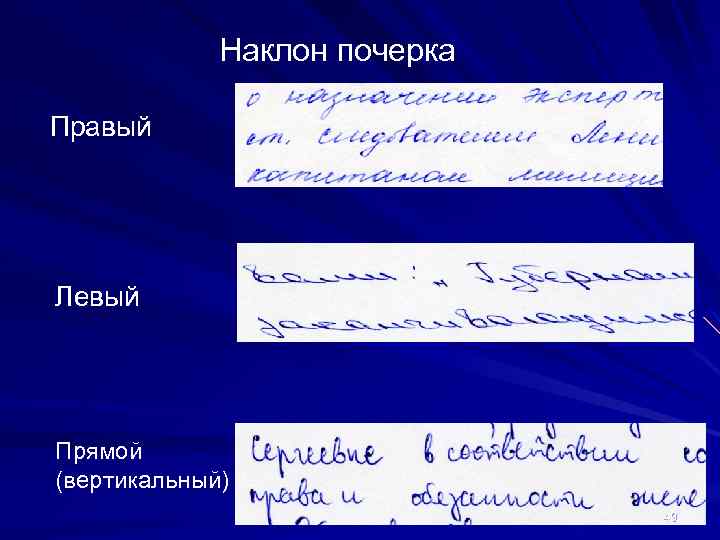 Наклон почерка
Правый
о назначении эксперт
ст. следователем Лени
капитаном милиции
Левый
вали: „ Губернат
заканчивающимся
Прямой
(вертикальный)
Сергеевне в соответствии со
права и обязанности экспе
49